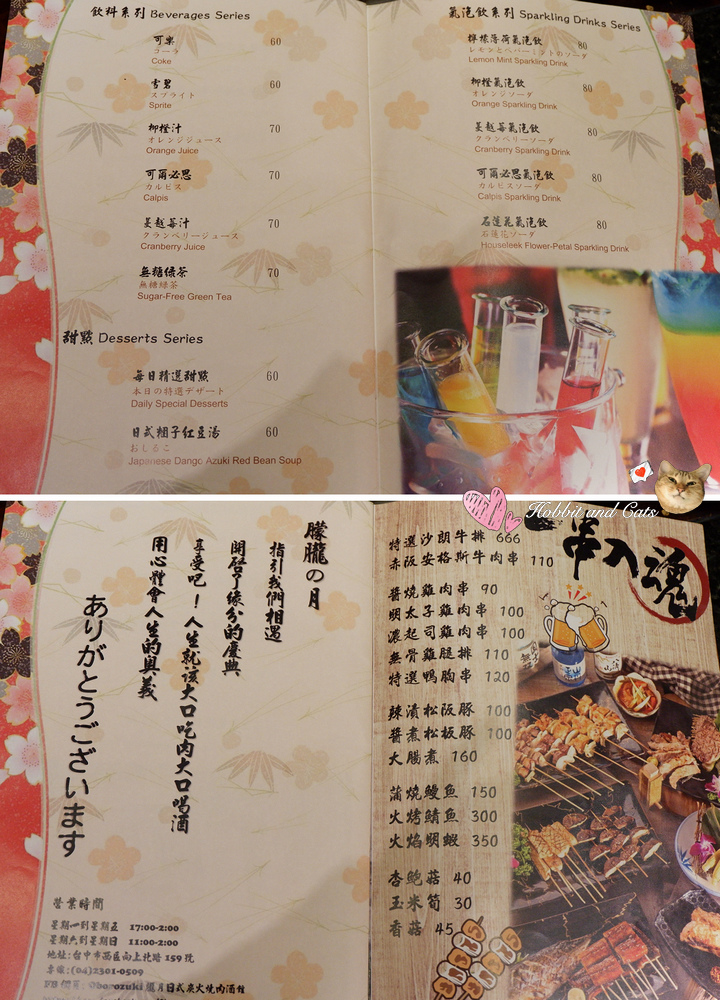 飲料系列 Beverages Series
可樂 60
コーラ
Coke
雪碧 60
スプライト
Sprite
柳橙汁 70
オレンジジュース
Orange Juice
可爾必思 70
カルピス
Calpis
蔓越莓汁 70
クランベリージュース
Cranberry Juice
無糖綠茶 70
無糖緑茶
Sugar-Free Green Tea
甜點 Desserts Series
每日精選甜點 60
本日の特選デザート
Daily Special Desserts
日式糰子紅豆湯 60
おしるこ
Japanese Dango Azuki Red Bean Soup
氣泡飲系列 Sparkling Drinks Series
檸檬薄荷氣泡飲 80
レモンとペパーミントのソーダ
Lemon Mint Sparkling Drink
柳橙氣泡飲 80
オレンジソーダ
Orange Sparkling Drink
蔓越莓氣泡飲 80
クランベリーソーダ
Cranberry Sparkling Drink
可爾必思氣泡飲 80
カルピスソーダ
Calpis Sparkling Drink
石蓮花氣泡飲 80
石蓮花ソーダ
Houseleek Flower-Petal Sparkling Drink
Hobbit and Cats
朦朧の月
指引我們相遇
開啓了緣分的慶典
享受吧！人生就該大口吃肉大口喝酒
用心體會人生的奧義
ありがとうございます
營業時間
星期一到星期五 17:00-2:00
星期六到星期日 11:00-2:00
地址:台中市西區向上北路159號
專線:(04)2301-0509
FB 個頁: Oborozuki 朧月日式炭火燒肉酒館
串入魂
特選沙朗牛排 666
赤阪安格斯牛肉串 110
醬燒雞肉串 90
明太子雞肉串 100
濃起司雞肉串 100
無骨雞腿排 110
特選鴨胸串 120
辣漬松阪豚 100
醬煮松板豚 100
大腸煮 160
蒲燒鰻魚 150
火烤鯖魚 300
火焰明蝦 350
杏鮑菇 40
玉米筍 30
香菇 45